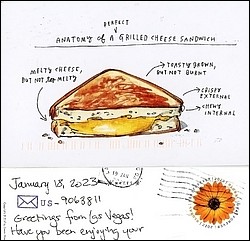 PERFECT
ANATOMY of A GRILLED CHEESE SANDWICH
MELTY CHEESE,
BUT NOT TOO MELTY
TOASTY BROWN,
BUT NOT BURNT
CRISPY
EXTERNAL
CHEWY
INTERNAL
19 JAN
January 18, 2023
US-9063811
Greetings from Las Vegas!
Have you been enjoying your